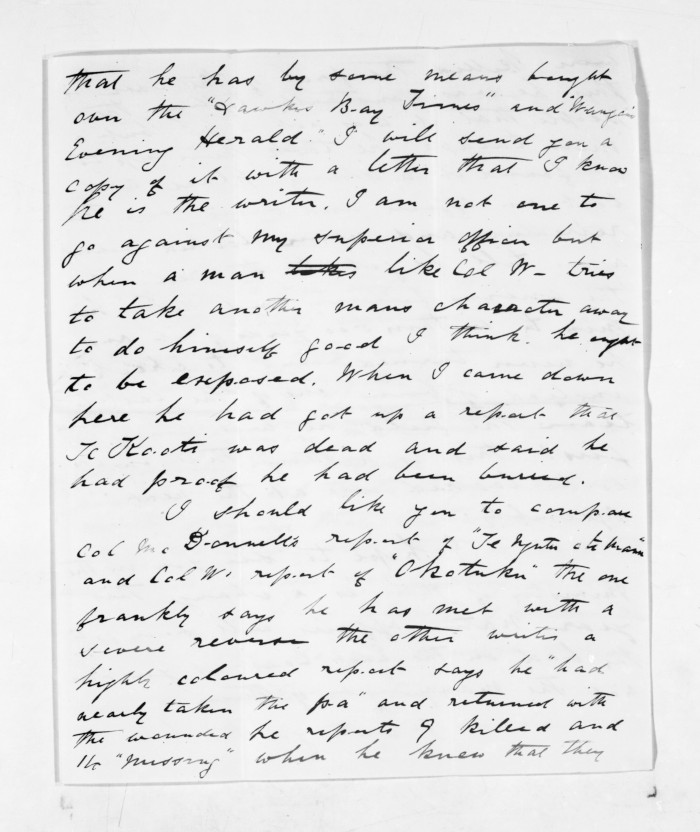 that he has by some means bought
over the "Hawkes Bay Times" and
Evening Herald." I will send you a
copy of it with a letter that I know
he is the writer. I am not one to
go against my superior officer but
when a man takes like Col W– tries
to take another mans character away
to do himself good I think he ought
to be exposed. When I came down
here he had got up a report that
Te Kooti was dead and said he
had proof he had been buried.
I should like you to compare
Col McDonnell's report of "Te Ngutu o te manu"
and Col W. report of "Okotuku" the one
frankly says he has met with a
severe reverse the other writes a
highly coloured report says he "had
nearly taken the pa" and returned with
the wounded he reports 9 killed and
"missing" when he knew that they